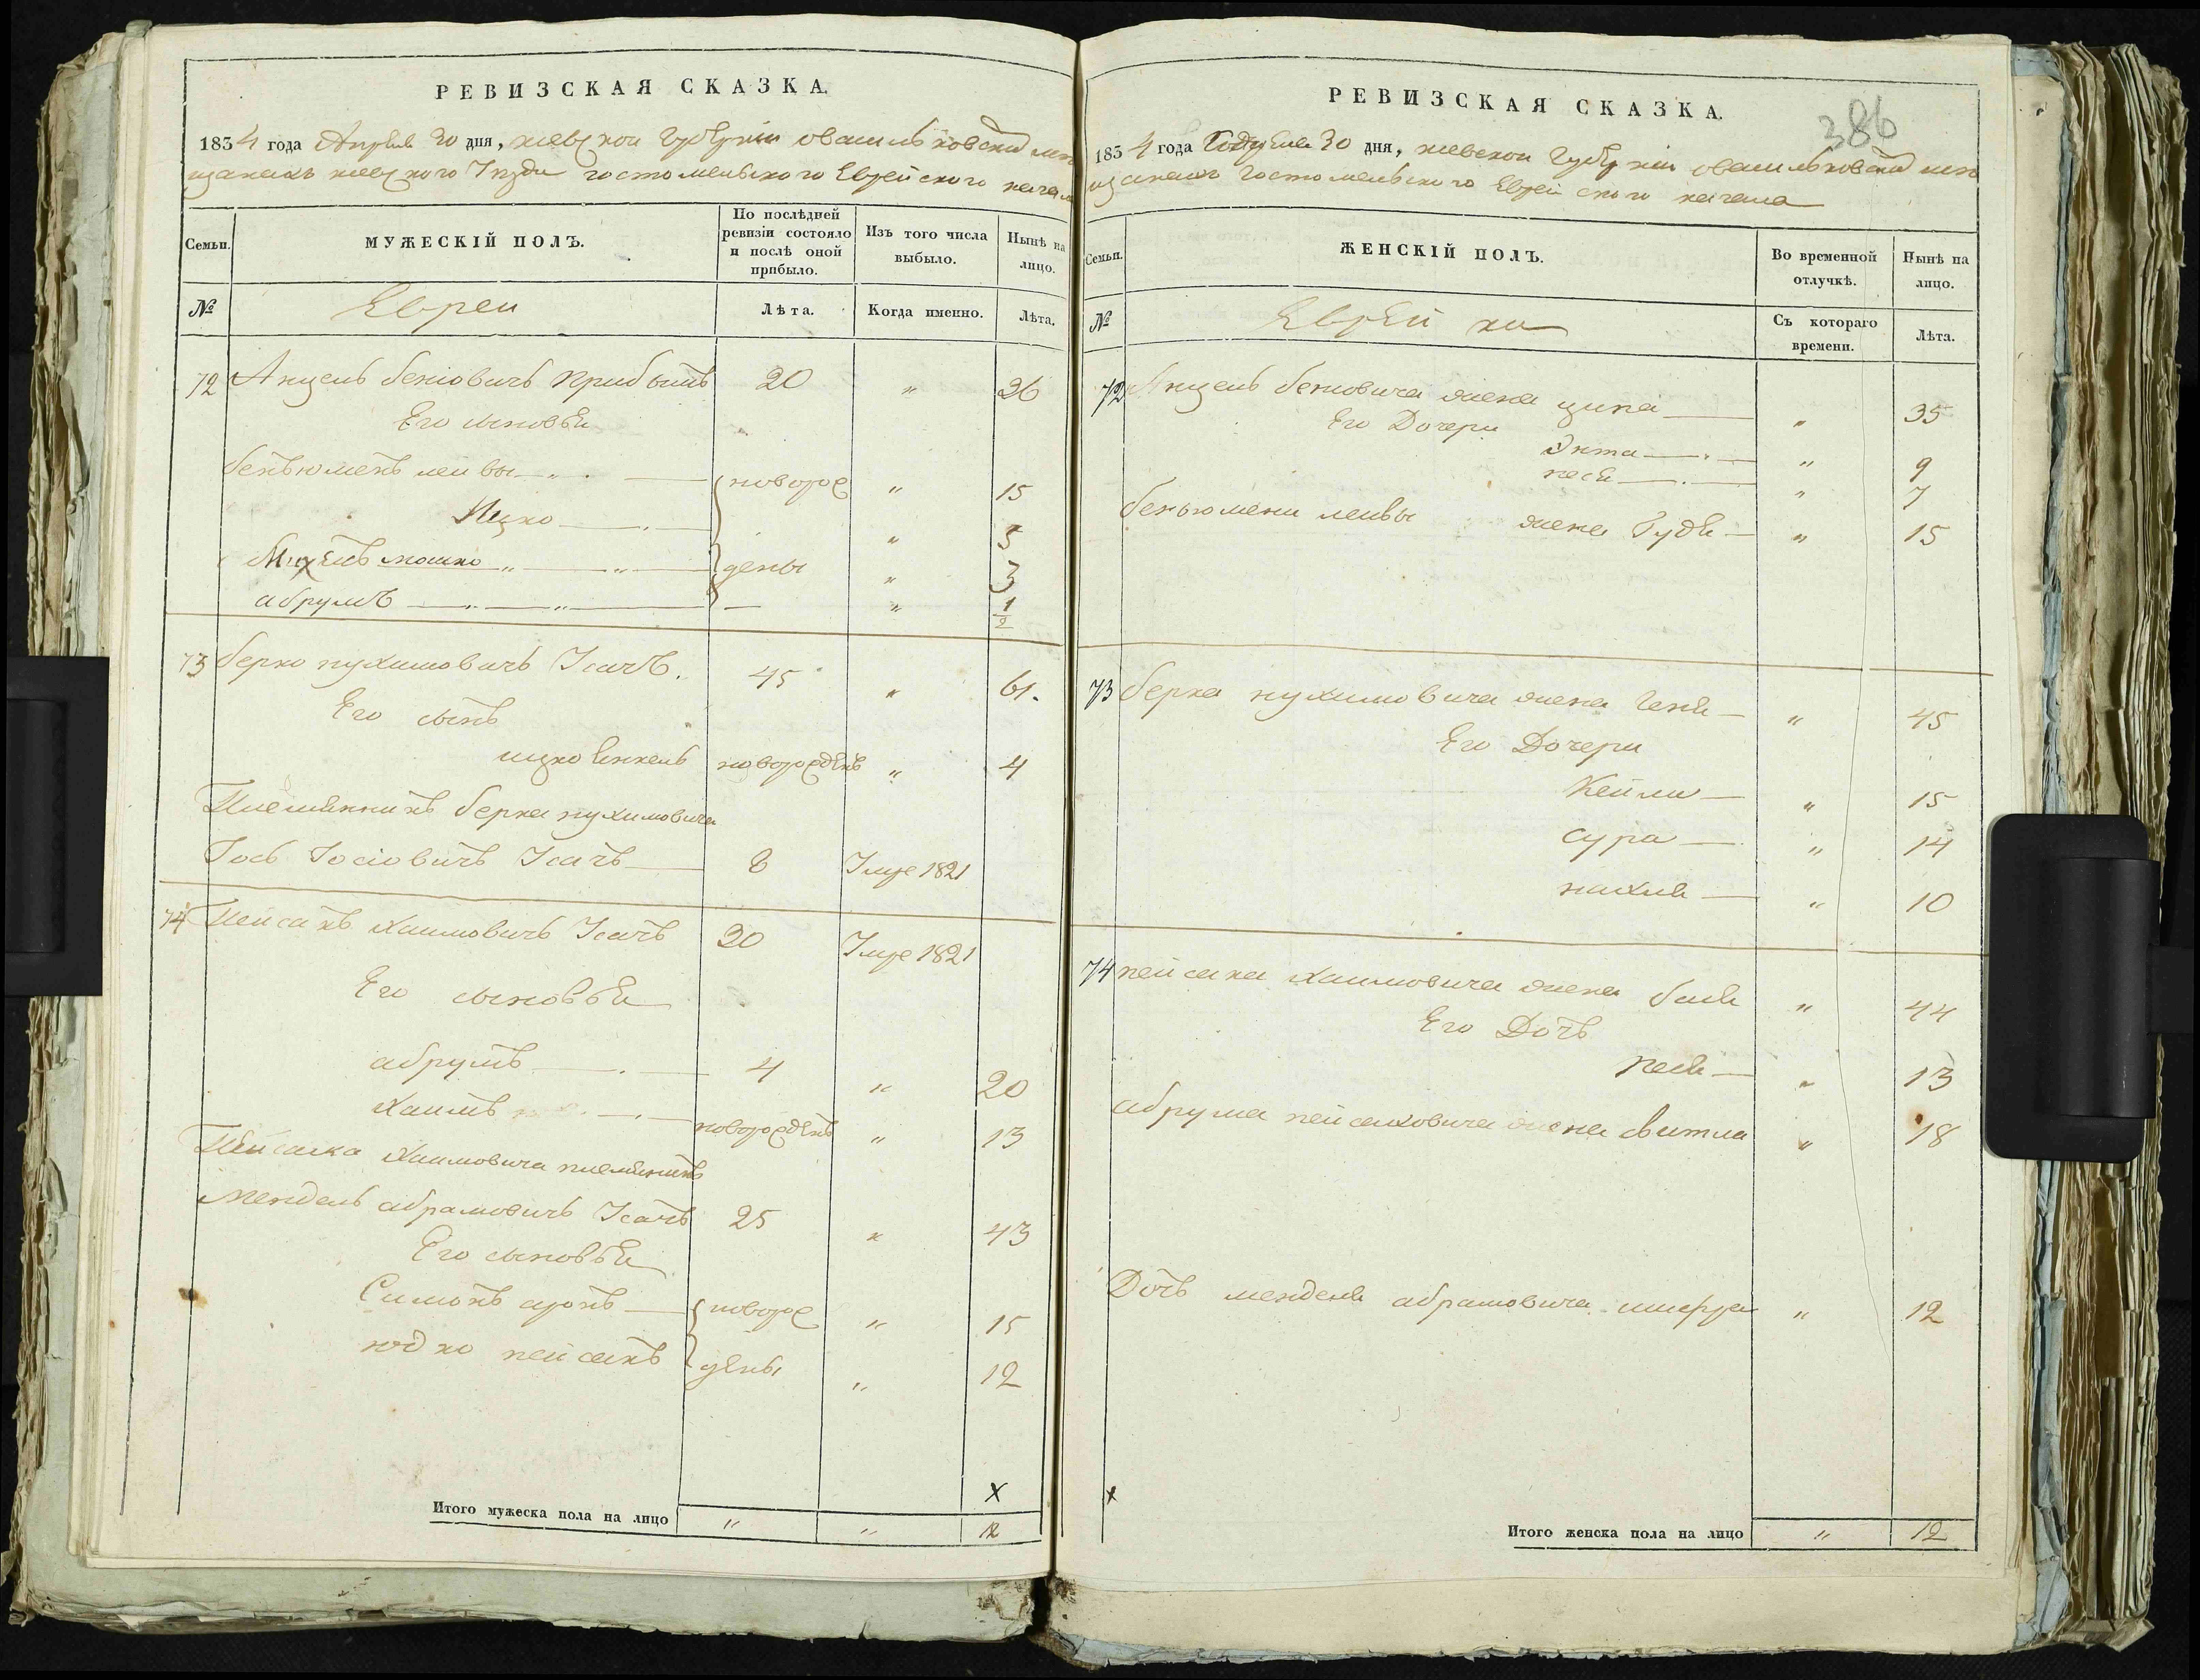 РЕВИЗСКАЯ СКАЗКА.
1834 года Апреля 30 дня, киевской Губернiи овасильковскихъ мѣ
щанахъ киевского Уезда гостомельского Еврейского кагала
Семьи.
МУЖЕСКІЙ ПОЛЪ.
По послѣдней ревизіи состояло и послѣ оной прибыло.
Изъ того числа выбыло.
Нынѣ на лицо.
№
Евреи
Лѣта.
Когда именно.
Лѣта.
72 Анцель беніовичъ 20 " 36
Его сыновья
беньюменъ лейвы новорож " 15
Ицко " 5
мошко дены " 3
абрумъ " 1/2
73 берко нухимовичъ Исачъ. 45 " 61.
Его сынъ
ицко Енкель новорожденъ " 4
Племянникъ берка нухимовича
Іось Іосіовичъ Исачъ 8 Умре 1821
74 Пейсахъ хаимовичъ Исачъ 30 Умре 1821
Его сыновья
абрумъ 4 " 20
хаимъ новорожденъ " 13
Пейсаха Хаимовича племяникъ
мендель абрамовичъ Исачъ 25 " 43
Его сыновья
Симонъ аронъ новорож " 15
юдко пейсахъ дены " 12
х
Итого мужеска пола на лицо " " 12
РЕВИЗСКАЯ СКАЗКА.
386
1834 года 30 дня, киевской Губернiи овасильковскихъ мѣ
щанахъ гостомельского Еврейского кагала
Семьи.
ЖЕНСКІЙ ПОЛЪ.
Во временной отлучкѣ.
Нынѣ на лицо.
№
Еврейки
Съ котораго времени.
Лѣта.
72 Анцель беніовича жена ципа " 35
Его Дочери
Энта " 9
песя " 7
беньюмена лейвы жена Гудя " 15
73 берка нухимовича жена Геня " 45
Его Дочери
Кейла " 15
сура " 14
" 10
74 пейсаха хаимовича жена бася " 44
Его Дочь
песя " 13
абрума пейсаховича жена свитла " 18
Дочь менделя абрамовича шифра " 12
х
Итого женска пола на лицо " 12